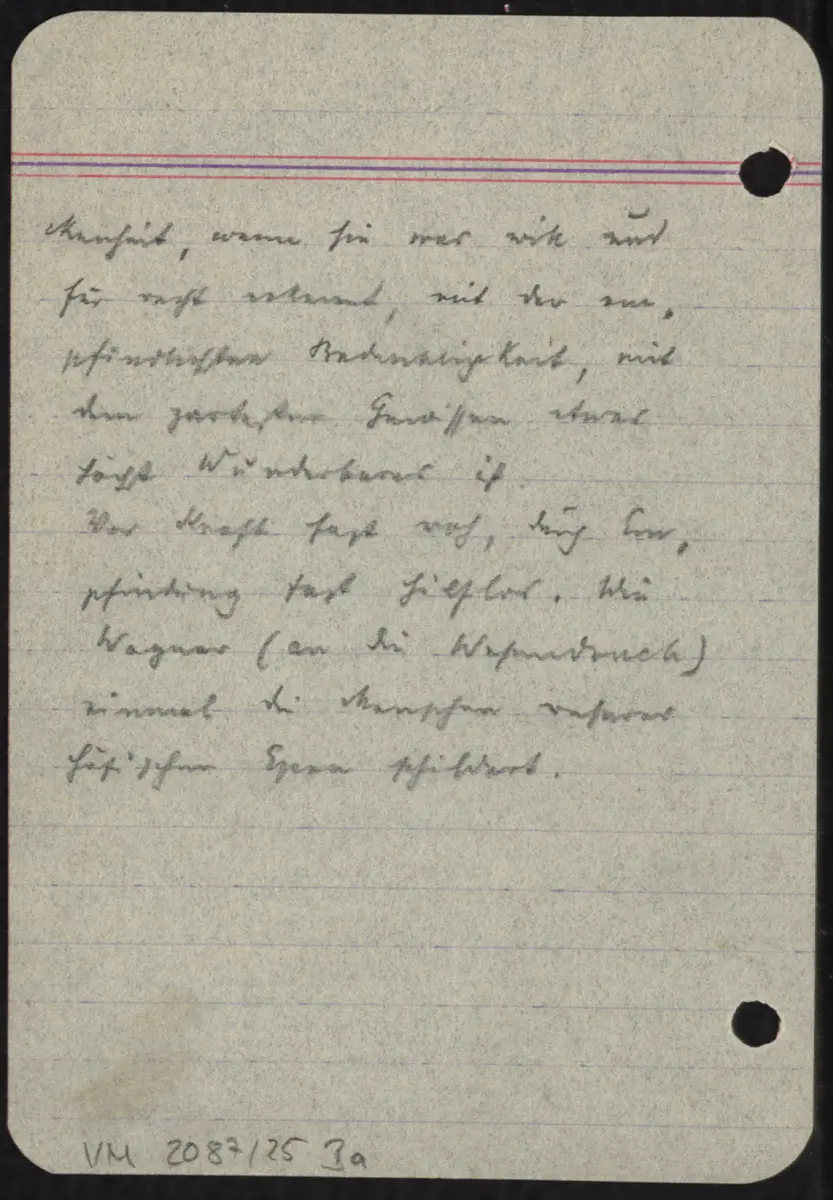 kenheit, wenn sie was will und
für recht erkennt, mit der em=
pfindlichsten Bedenklichkeit, mit
dem zartesten Gewissen etwas
höchst Wunderbares ist.
Vor Kraft fast roh, durch Em=
pfindung fast hilflos. Wie
Wagner (an die Wesendonck)
einmal die Menschen unserer
höfischen Epen schildert.
VM 2087/25 Ba